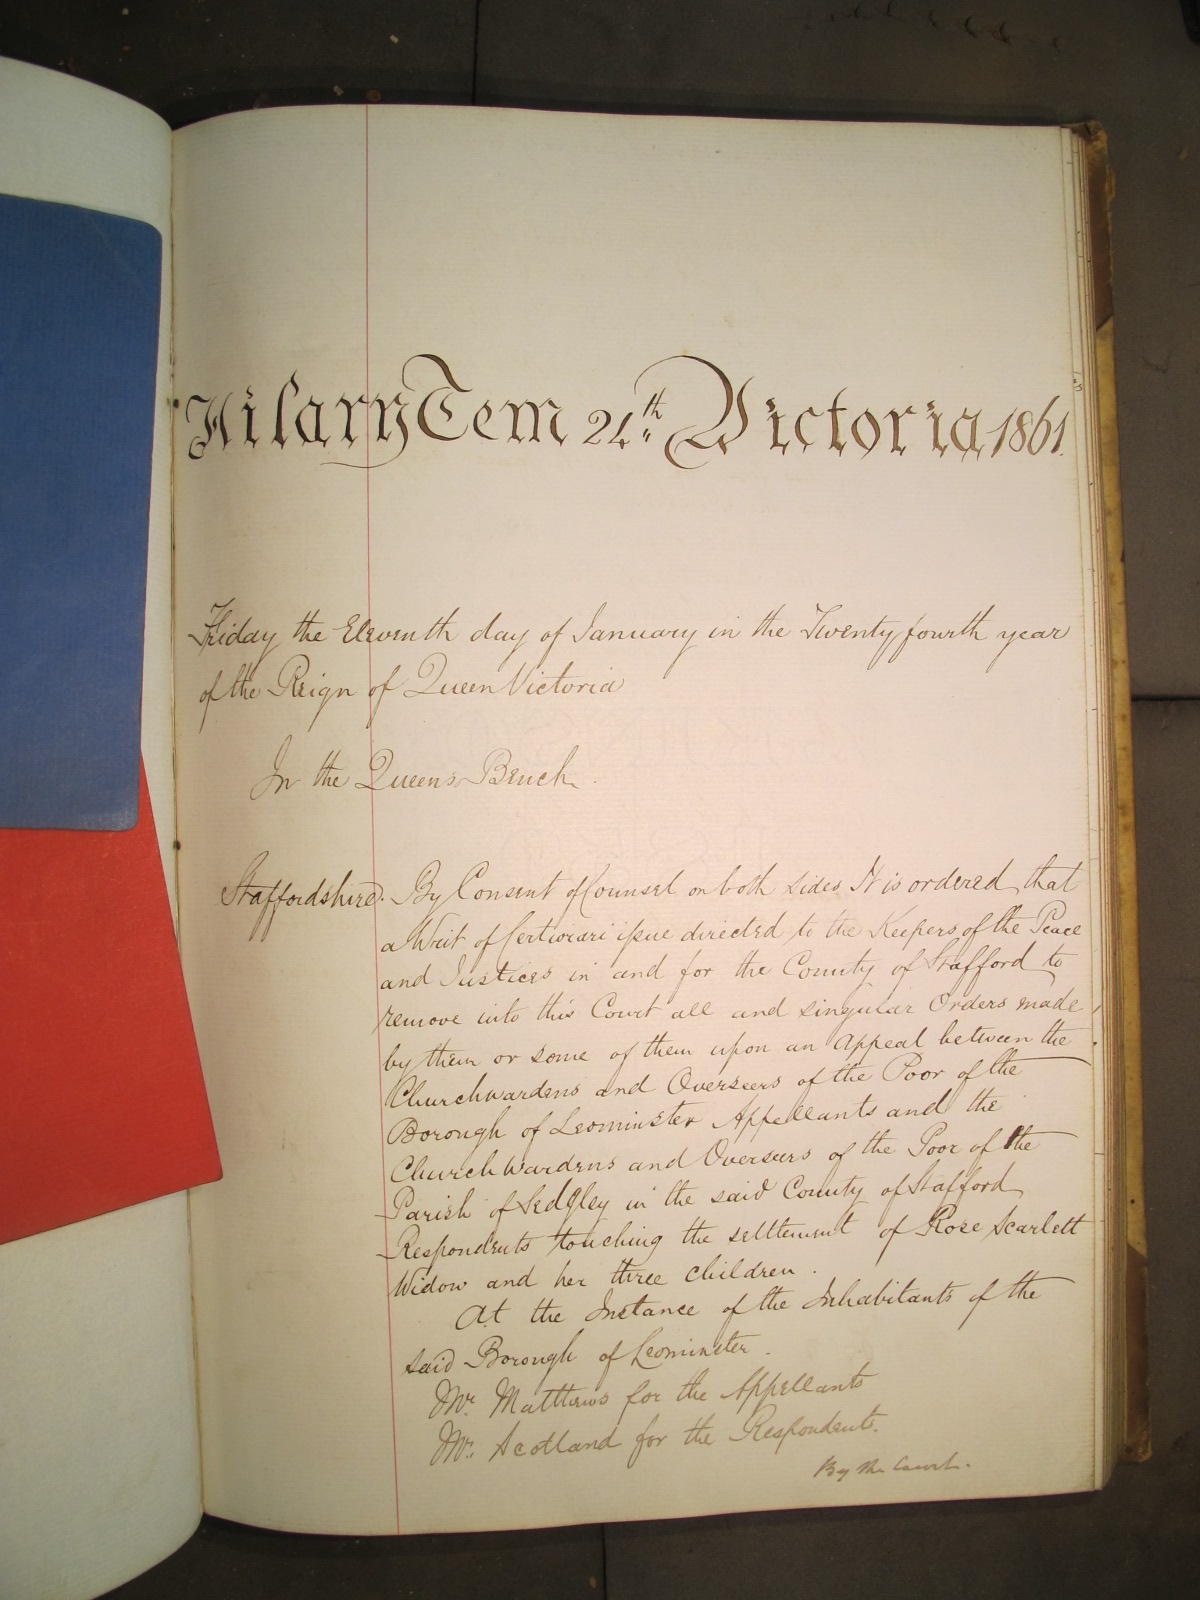 Hilary Tem 24th Victoria 1861.
Friday the Eleventh day of January in the Twenty fourth year
of the Reign of Queen Victoria
In the Queens Bench.
Staffordshire. By Consent of Counsel on both sides It is ordered that
a Writ of Certiorari issue directed to the Keepers of the Peace
and Justices in and for the County of Stafford to
remove into this Court all and singular Orders made
by them or some of them upon an Appeal between the
Churchwardens and Overseers of the Poor of the
Borough of Leominster Appellants and the
Churchwardens and Overseers of the Poor of the
Parish of Sedgley in the said County of Stafford
Respondents touching the settlement of Rose Scarlett
Widow and her three children.
At the Instance of the Inhabitants of the
said Borough of Leominster.
Mr. Matthews for the Appellants
Mr. Scotland for the Respondents.
By the Court.